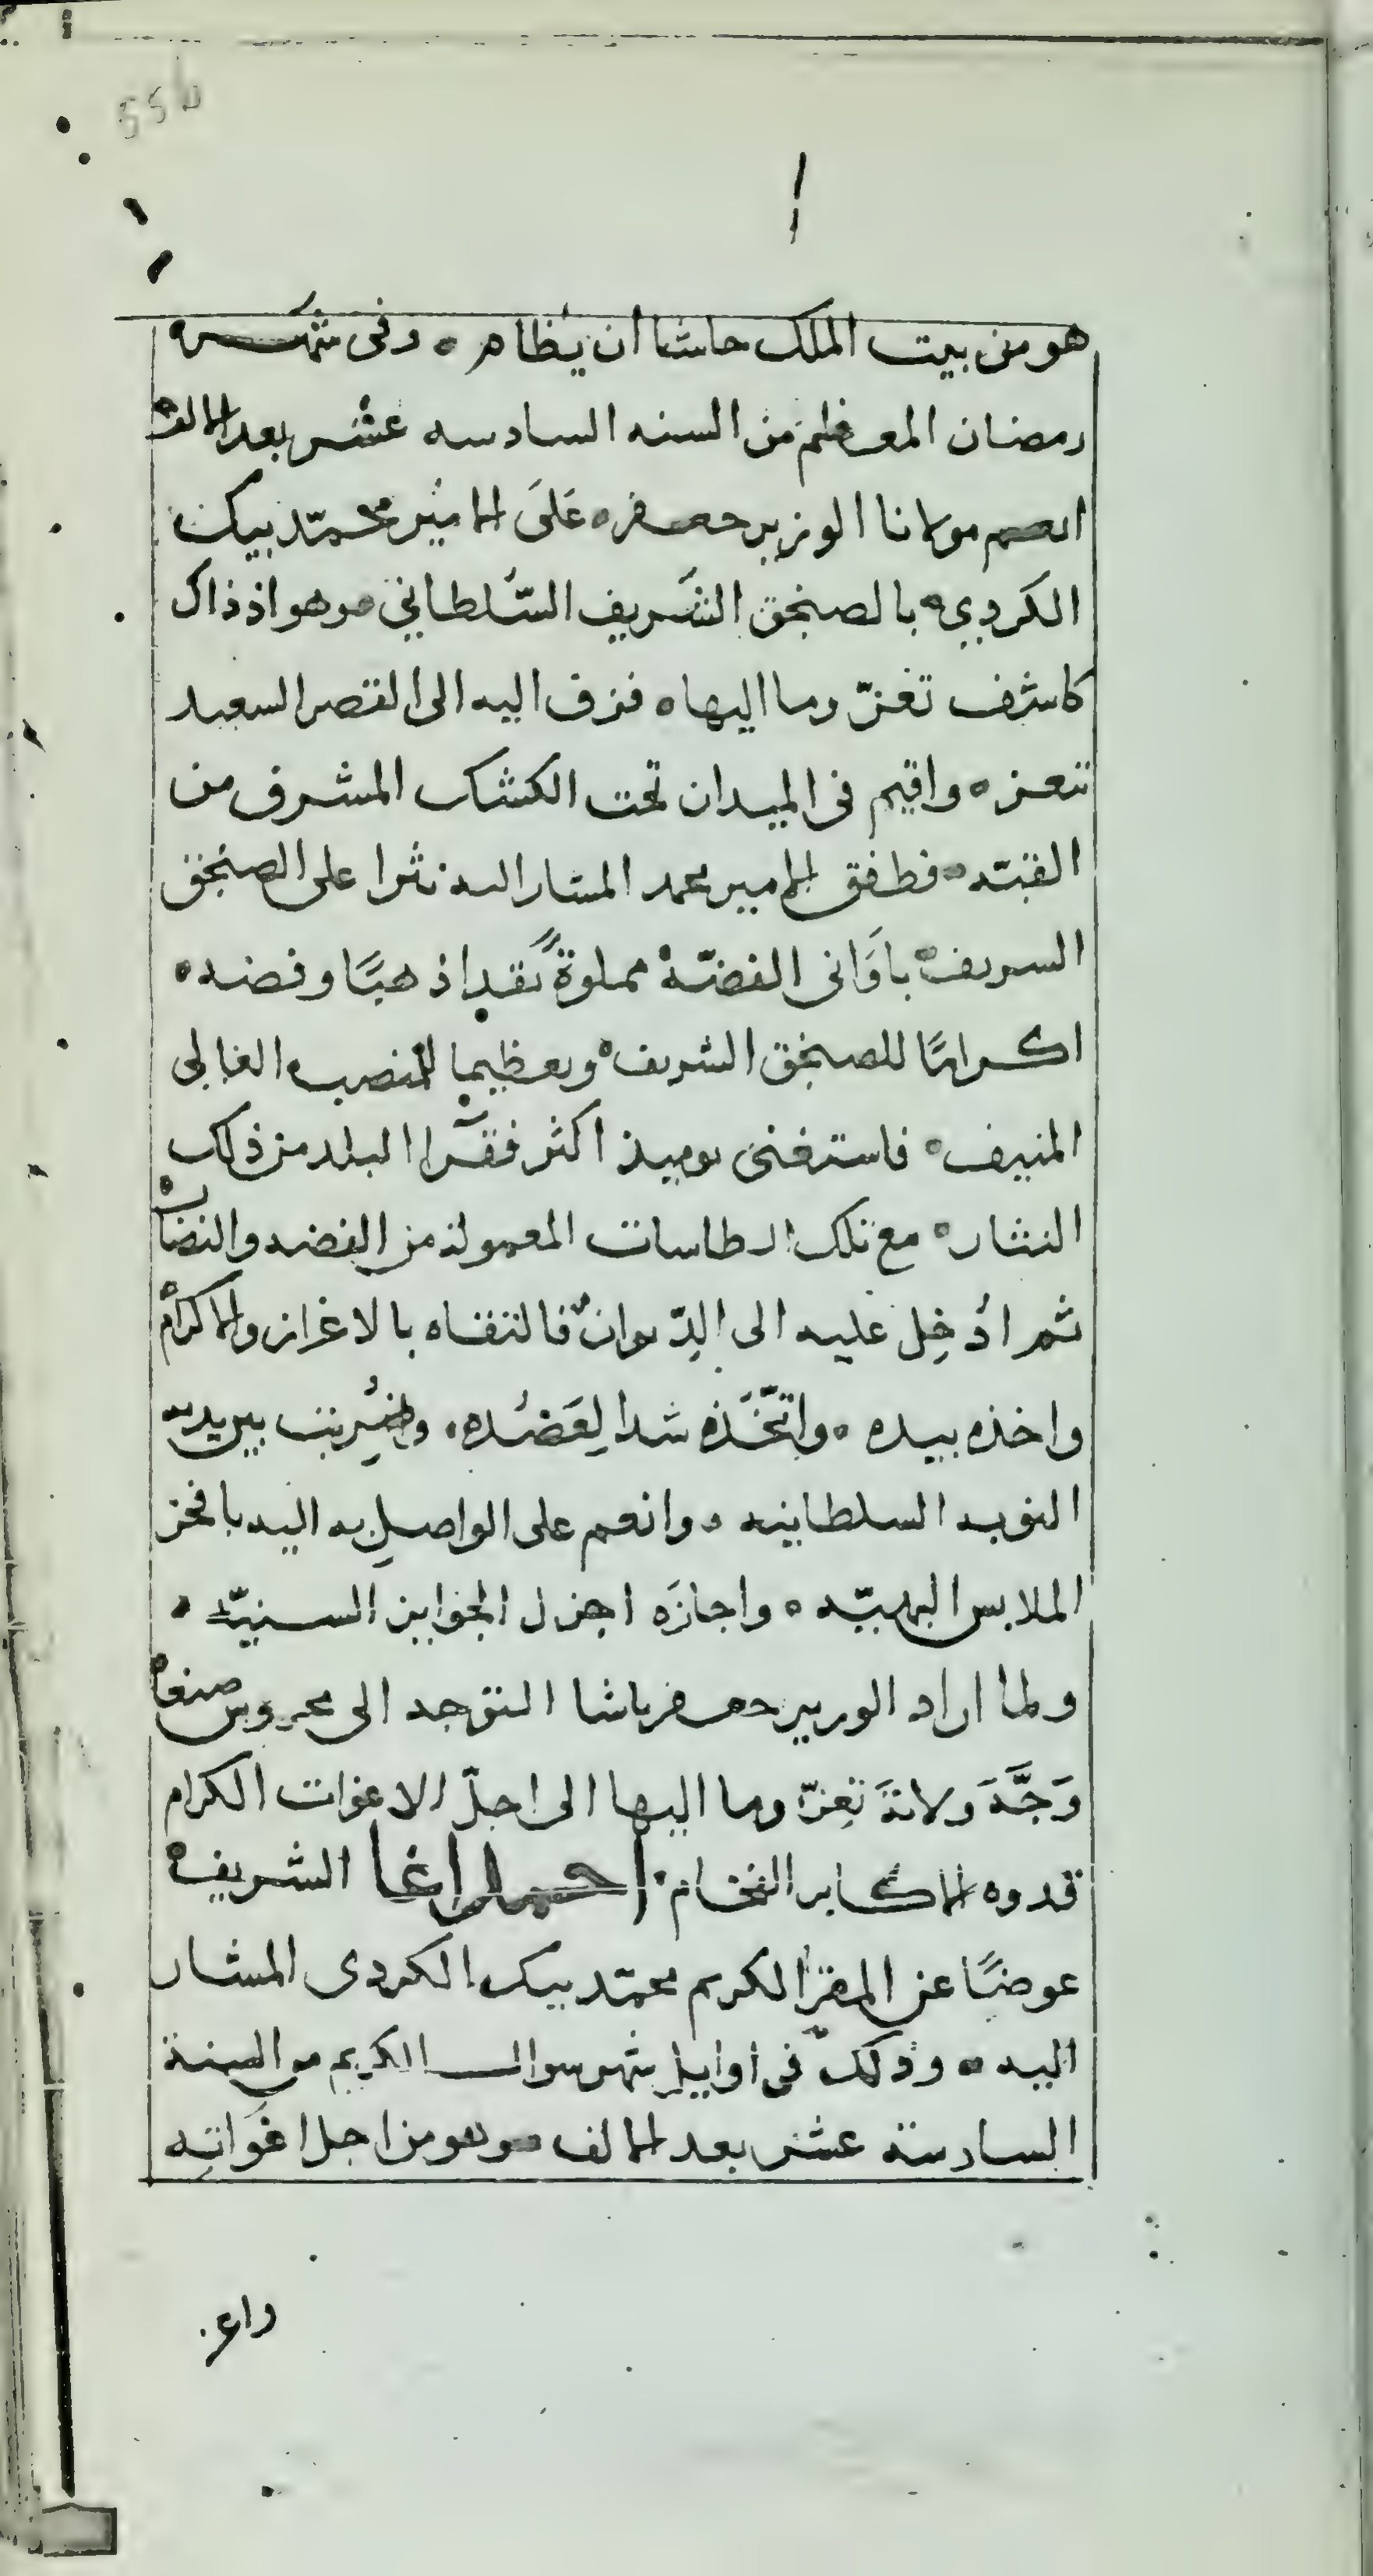 55b
هو من بيت الملك حاشا ان يظاهر ه وفى شهر
رمضان المعظم من السنه السادسه عشر بعد الالف
انعم مولانا الوزير جعفر ه عَلىَ الامير محمّد بيك
الكردي ه بالصنجق الشَريف السّلطاني ه وهو اذ ذاك
كاشف تعزّ وما اليها ه فزف اليه الى القصر السعيد
بتعز ه واقيم فى الميدان تحت الكشك المشرف من
القبّه ه فطفق الامير محمد المشار اليه نثرا على الصنجق
الشريف ه بأَوانى الفضّة مملوةً نقدا ذهبًا وفضه ه
اكرامًا للصنجق الشريف ه وتعظيما للمنصب العالى
المنيف ه فاستغنى يوميذ اكثر فقرا البلد من ذلك
النثار ه مع تلك الطاسات المعموله من الفضه والنضار
ثم ادُخِل عليه الى الدّيوان ه فالتقاه بالاعزاز والاكرام
واخذه بيده ه واتخَّذَه شدا لِعَضُده ه وضُرِبت بين يديه
النوبه السلطانيه ه وانعم على الواصلِ به اليه بافخر
الملابس البهيّه ه واجازَه اجزل الجوايز السنيّه ه
ولما اراد الوزير جعفر باشا التوجه الى محروس صنعا
وَجَّهَ ولايةَ تعِزّ وما اليها الى اجلّ الاغوات الكرام
قدوه الاكابر الفخام ه احمد اغا الشريف ه
عوضًا عن المقرّ الكريم محمّد بيك الكردى المشار
اليه ه وذلك فى اوايل شهر شوال الكريم من السنة
السادسة عشر بعد الالف ه وهو من اجل اغَواتِه